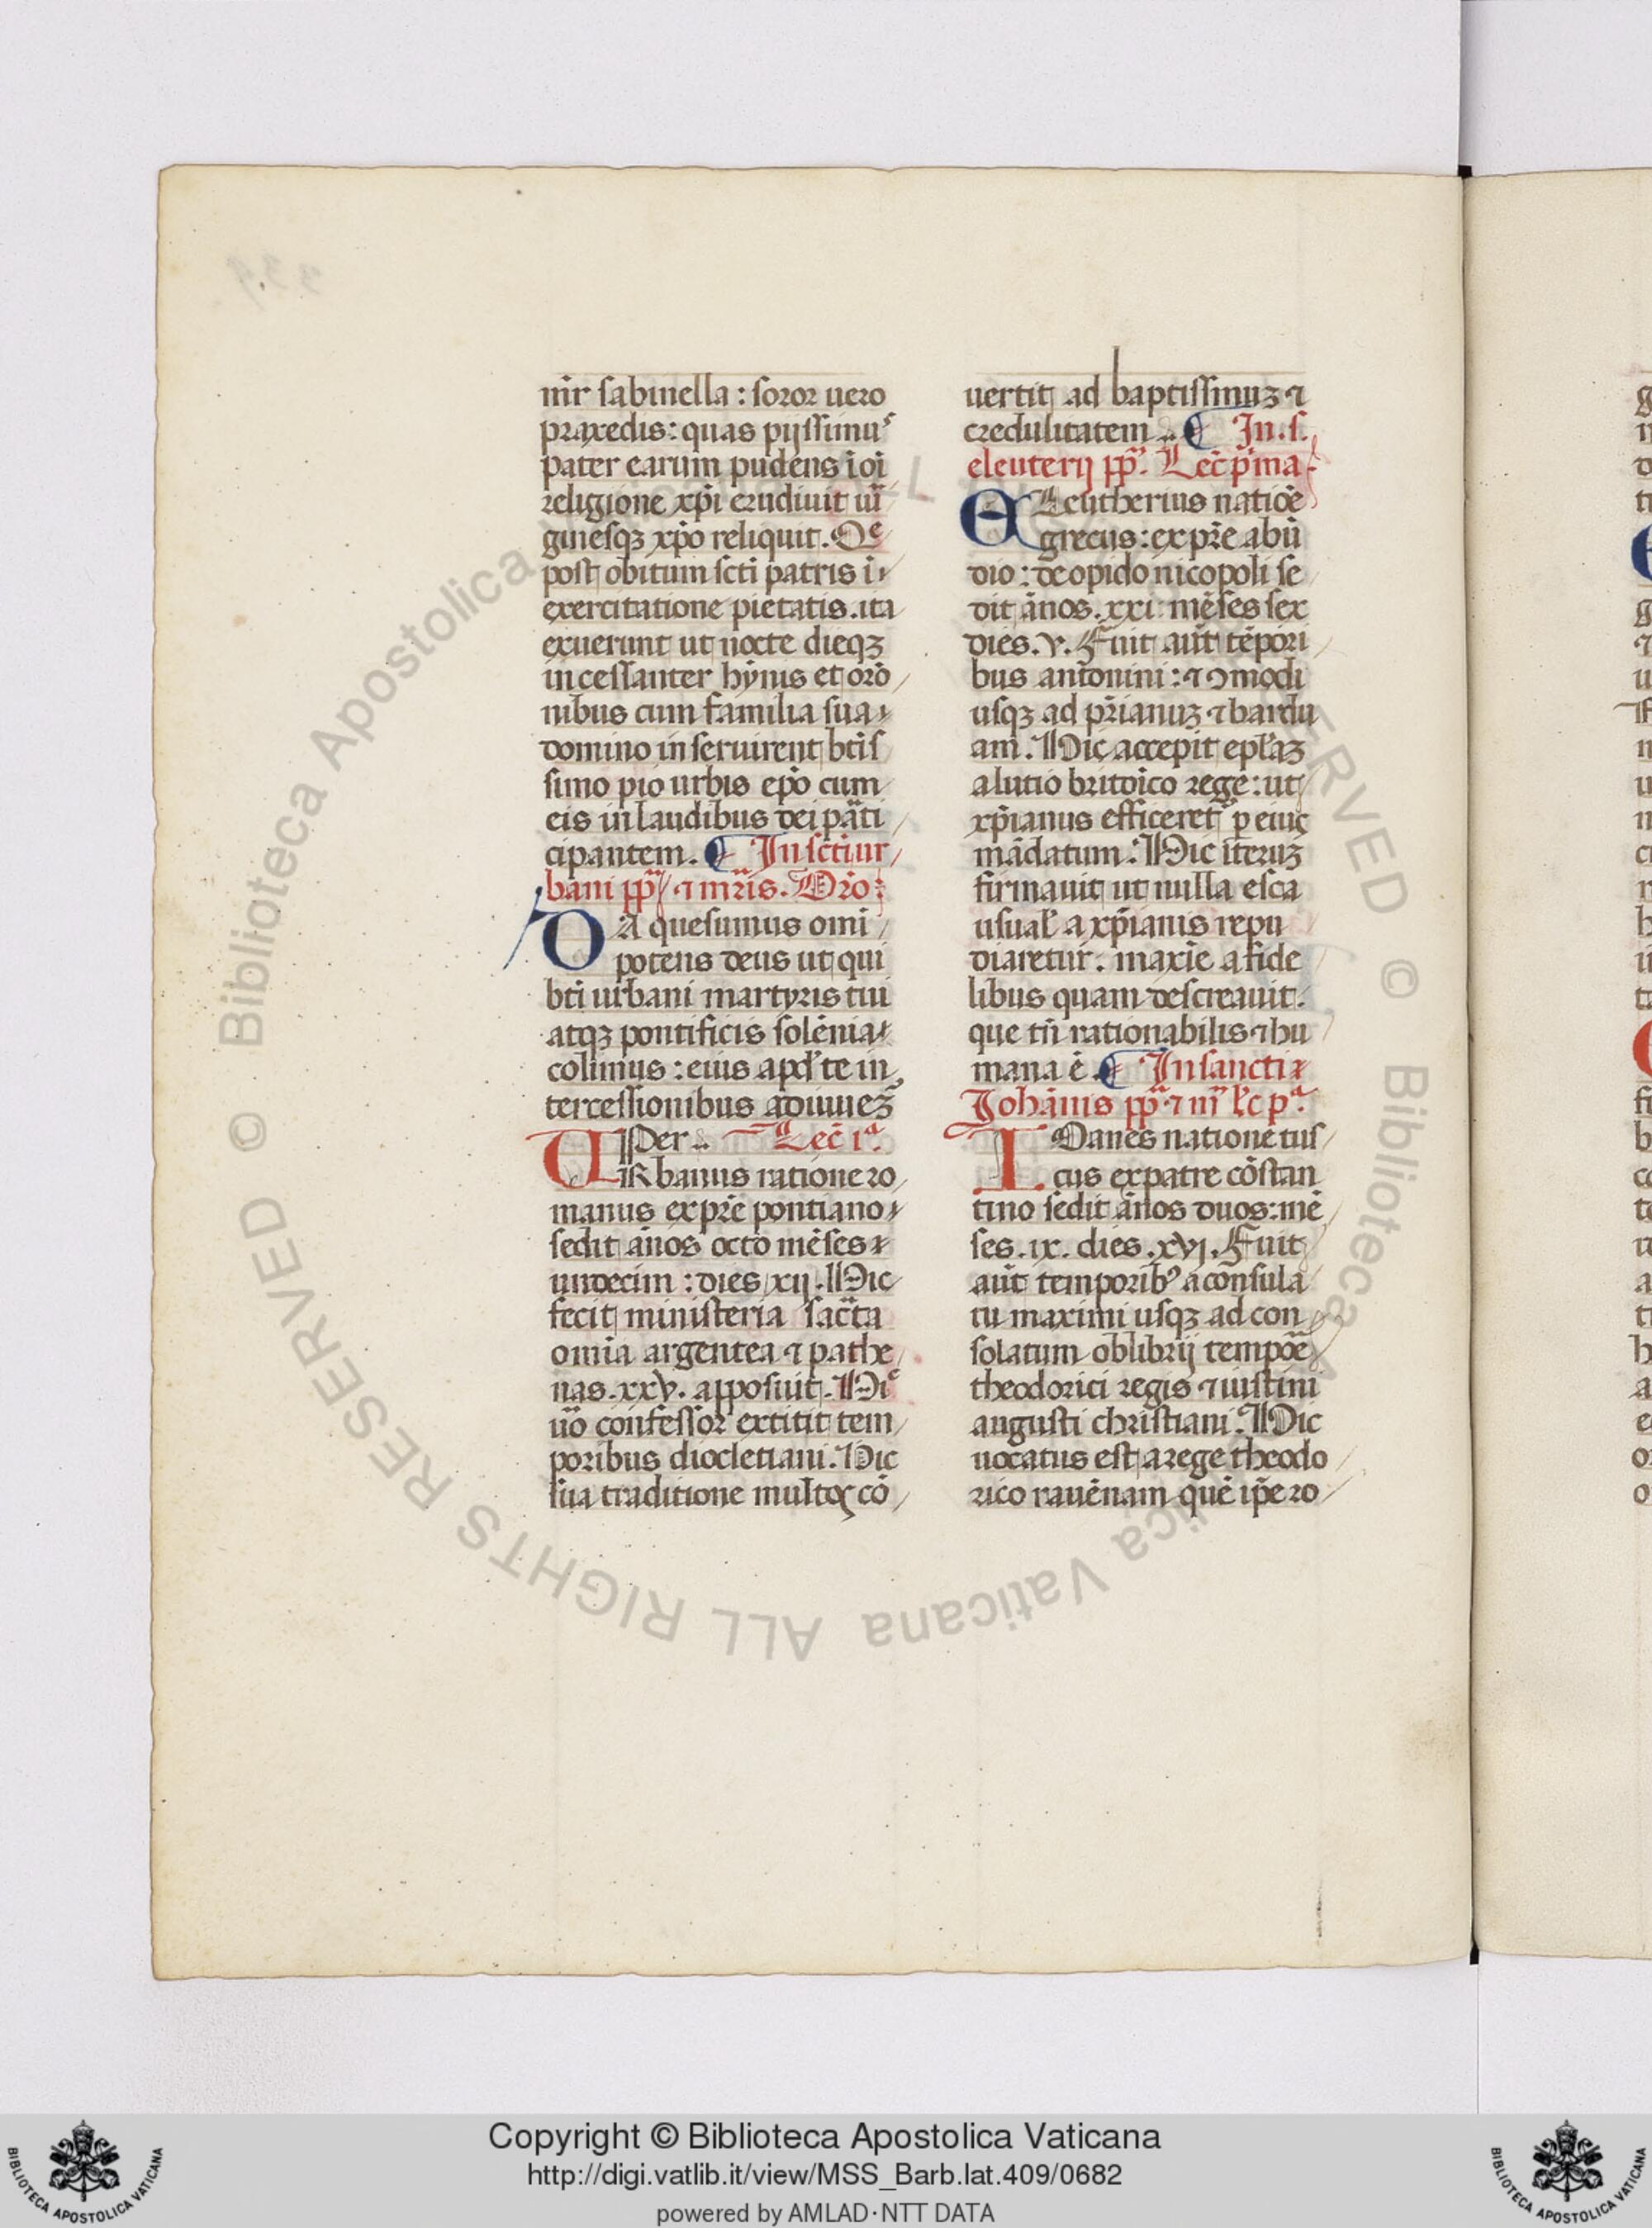 mr̃ sabinella : soror uero
praxedis : quas pijssimuˢ
pater earum pudens ĩoĩ
religione xp̃i erudiuit uir̃
ginesqꝫ xp̃o reliquit. Qᵉ
post obitum scti patris ĩ
exercitatione pietatis. ita
exuerunt ut nocte dieqꝫ
incessanter hỹnis et orõ
nibus cum familia sua
domino inseruirent btĩs
simo pio urbis ep̃o cum
eis in laudibus dei pãti
cipantem. ¶ In scti ur
bani pp̃ ⁊ mr̃is. Orõ:
DA quesumus omĩ
potens deus ut qui
bti urbani martyris tui
atqꝫ pontificis solẽnia
colimus : eius apď te in
tercessionibus adiuuẽꝫ
Per .. Lec̃ 1ᵃ
URbanus natione ro
manus ex pr̃e pontiano
sedit ãnos octo mẽses
undecim : dies xij. Hic
fecit ministeria sacr̃ta
omĩa argentea ⁊ pathe
nas. xxv. apposuit. Hiᶜ
uõ confessor extitit tem
poribus diocletiani. Hic
sua traditione multoꝝ cõ
uertit ad baptissimuꝫ ⁊
credulitatem .. ¶ In. s.
eleuterij pp̃. Lec̃ p̃ma
ELeutherius natiõe
grecus : ex pr̃e abũ
dio : de opido nicopoli se
dit ãnos. xxi mẽses sex
dies. v. Fuit aũt tẽpori
bus antonini : ⁊ ꝯmodi
usqꝫ ad pr̃ianuꝫ ⁊ bardu
am. Hic accepit epľaꝫ
a lutio britoĩco rege : ut
xp̃ianus efficeret̃ p eiuꝰ
mãdatum. Hic iteruꝫ
firmauit ut nulla esca
usuaľ a xp̃ianis repu
diaretur. maxĩe a fide
libus quam des creauit.
que tñ rationabilis ⁊ hu
mana ẽ. ¶ In sancti
Johãnis pp̃ ⁊ m̃ lc̃ pᵃ.
IOanes natione tus
cus ex patre cõstan
tino sedit ãnos duos : mẽ
ses. ix. dies. xvj. Fuit
aũt temporibꝰ a consula
tu maximi usqꝫ ad con
solatum oblibrij tempoẽ
theodorici regis ⁊ iustini
augusti christiani. Hic
uocatus est a rege theodo
rico rauẽnam quẽ ip̃e ro
Copyright © Biblioteca Apostolica Vaticana
http://digi.vatlib.it/view/MSS_Barb.lat.409/0682
powered by AMLAD·NTT DATA